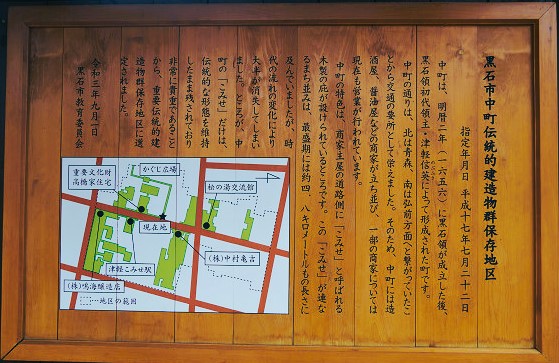 黒石市中町伝統的建造物群保存地区
指定年月日 平成十七年七月二十二日
中町は、明暦二年（一六五六）に黒石領が成立した後、
黒石領初代領主・津軽信英によって形成された町です。
中町の通りは、北は青森、南は弘前方面へ繋がっていたこ
とから交通の要所として栄えました。そのため、中町には造
酒屋、醤油屋などの商家が立ち並び、一部の商家については
現在も営業が行われています。
中町の特色は、商家主屋の道路側に「こみせ」と呼ばれる
木製の庇が設けられているところです。この「こみせ」が連な
るまち並みは、最盛期には約四．八キロメートルもの長さに
及んでいましたが、時
代の流れの変化により
大半が消失してしまい
ました。ところが、中
町の「こみせ」だけは、
伝統的な形態を維持
したまま残されており
非常に貴重であること
から、重要伝統的建
造物群保存地区に選
定されました。
令和三年九月一日
黒石市教育委員会
かぐじ広場
重要文化財
高橋家住宅
松の湯交流館
現在地
(株)中村亀吉
津軽こみせ駅
(株)鳴海醸造店
…地区の範囲